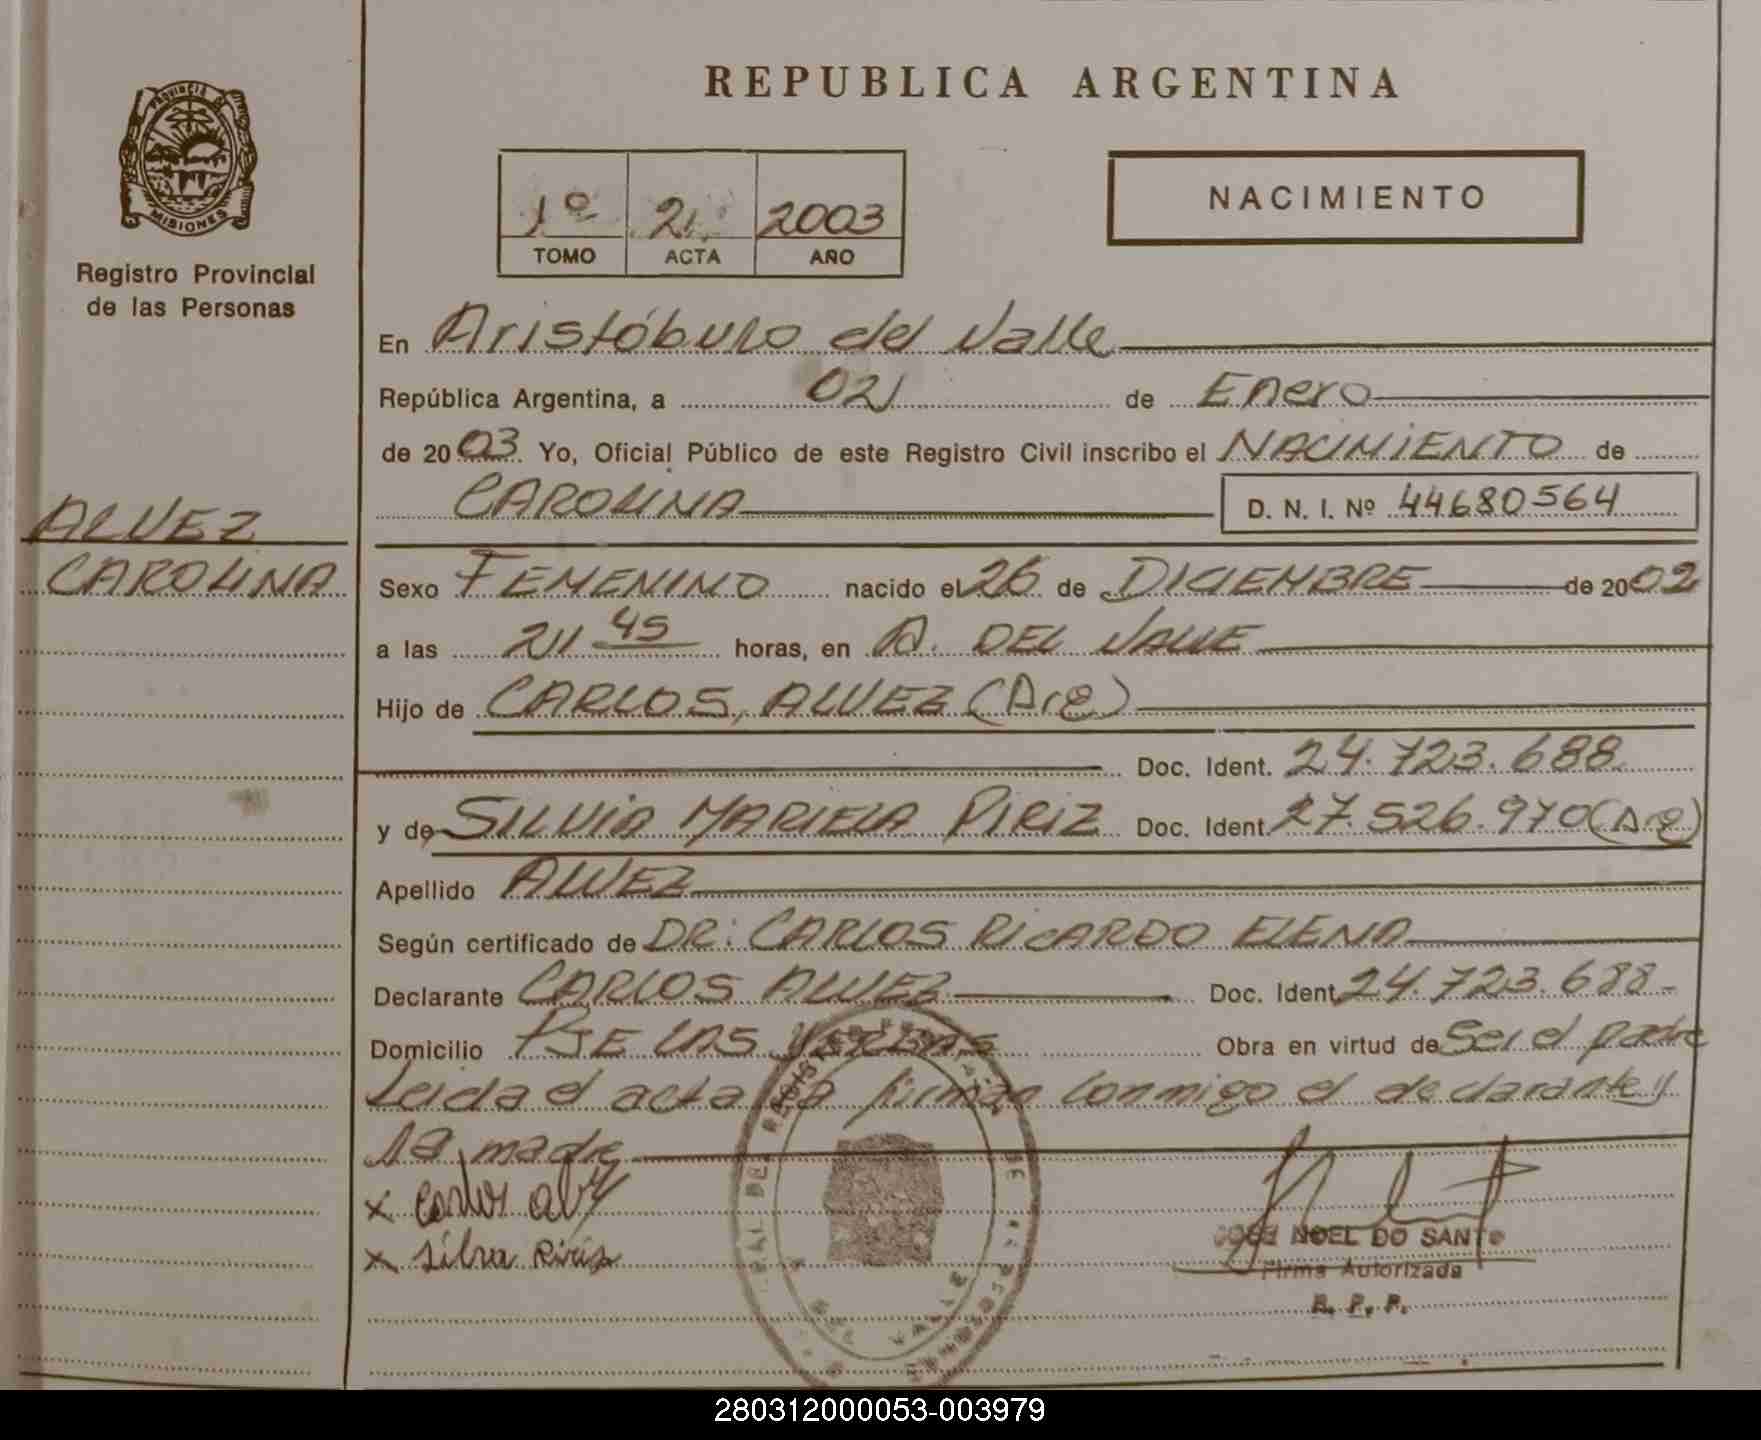 PROVINCIA DE
MISIONES
Registro Provincial
de las Personas
ALVEZ
CAROLINA
REPUBLICA ARGENTINA
1º 2 2003
TOMO ACTA AÑO
NACIMIENTO
En Aristóbulo del Valle
República Argentina, a 02 de Enero
de 2003 Yo, Oficial Público de este Registro Civil inscribo el NACIMIENTO de
CAROLINA D. N. I. Nº 44680564
Sexo FEMENINO nacido el 26 de DICIEMBRE de 2002
a las 21 45 horas, en A. DEL VALLE
Hijo de CARLOS, ALVEZ (Arg)
Doc. Ident. 24.723.688
y de SILVIA MARIELA PIRIZ Doc. Ident. 27.526.970 (Arg)
Apellido ALVEZ
Según certificado de DR: CARLOS RICARDO ELENA
Declarante CARLOS ALVEZ Doc. Ident. 24.723.688-
Domicilio PJE LAS YERBAS Obra en virtud de Ser el padre
Leida el acta la firman conmigo el declarante y
la madre
x Carlos
x Silvia Piriz
JOSE NOEL DO SANTO
Firma Autorizada
R. P. P.
DEL VALLE
280312000053-003979